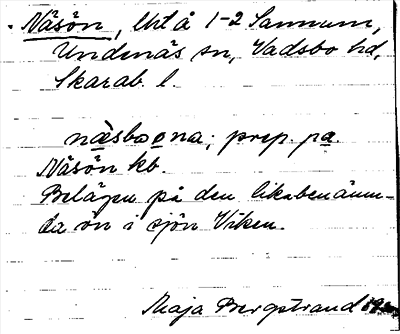 Näsön, Utå 1-2 Sannum,
Undenäs sn, Vadsbo hd,
Skarab. l.
näsboona; prep. pa.
Näsön kb.
Belägen på den likabenämn-
da ön i sjön Viken.
Maja Bergstrand